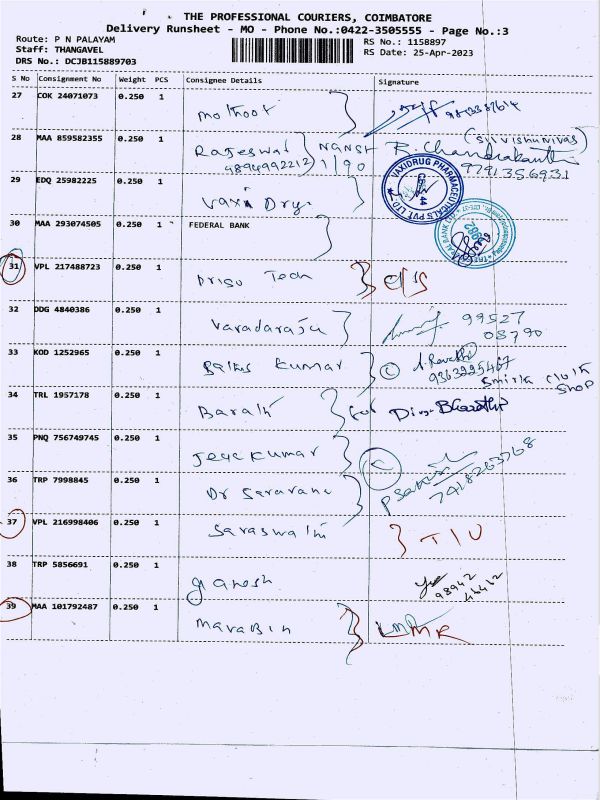 THE PROFESSIONAL COURIERS, COIMBATORE
Delivery Runsheet - MO - Phone No.:0422-3505555 - Page No.:3
Route: P N PALAYAM
Staff: THANGAVEL
DRS No.: DCJB115889703
RS No.: 1158897
RS Date: 25-Apr-2023
S No Consignment No Weight PCS Consignee Details Signature
27 COK 24071073 0.250 1 Mothoot
28 MAA 859582355 0.250 1 Rajeswat NGNST R. Chandrakanth
9894992212 1/90 9791356931
29 EDQ 25982225 0.250 1 Vaxi Drug
VAXIDRUG PHARMACEUTICALS PVT LTD
30 MAA 293074505 0.250 1 FEDERAL BANK
31 VPL 217488723 0.250 1 Driso Tech C/S
32 DDG 4840386 0.250 1 Varadaraju 99527
08790
33 KOD 1252965 0.250 1 Kumar J. Revathi
9363225467
Smirla Cloth
Shop
34 TRL 1957178 0.250 1 Barath for Divya Bharathi
35 PNQ 756749745 0.250 1 Jeyekumar
36 TRP 7998845 0.250 1 Dr Saravana 7418263768
37 VPL 216998406 0.250 1 Saraswathi T/U
38 TRP 5856691 0.250 1 ganesh
98942
39 MAA 101792487 0.250 1 Marabin LMR